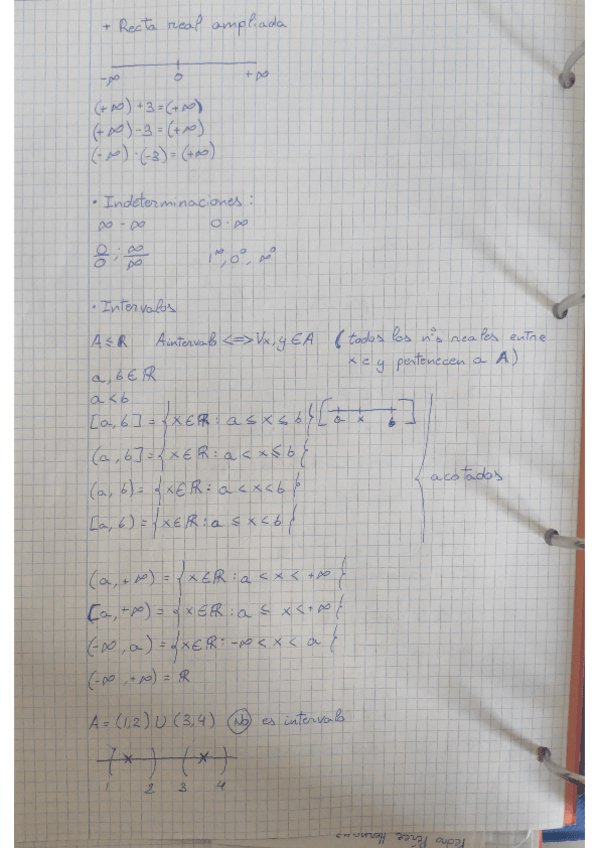 + Recta real ampliada
-∞ 0 +∞
(+∞) + 3 = (+∞)
(+∞) - 3 = (+∞)
(-∞) · (-3) = (+∞)
• Indeterminaciones:
∞ - ∞ 0 · ∞
0/0 ; ∞/∞ 1^∞, 0^0, ∞^0
• Intervalos
A ⊆ R A intervalo <=> ∀x,y ∈ A (todos los nºs reales entre
x e y pertenecen a A)
a, b ∈ R
a < b
[a, b] = {x ∈ R : a ≤ x ≤ b} [ a x b ]
(a, b] = {x ∈ R : a < x ≤ b}
(a, b) = {x ∈ R : a < x < b}
[a, b) = {x ∈ R : a ≤ x < b}
acotados
(a, +∞) = {x ∈ R : a < x < +∞}
[a, +∞) = {x ∈ R : a ≤ x < +∞}
(-∞, a) = {x ∈ R : -∞ < x < a}
(-∞, +∞) = R
A = (1,2) ∪ (3,4) No es intervalo
( x ) ( x )
1 2 3 4
Pedro Pérez